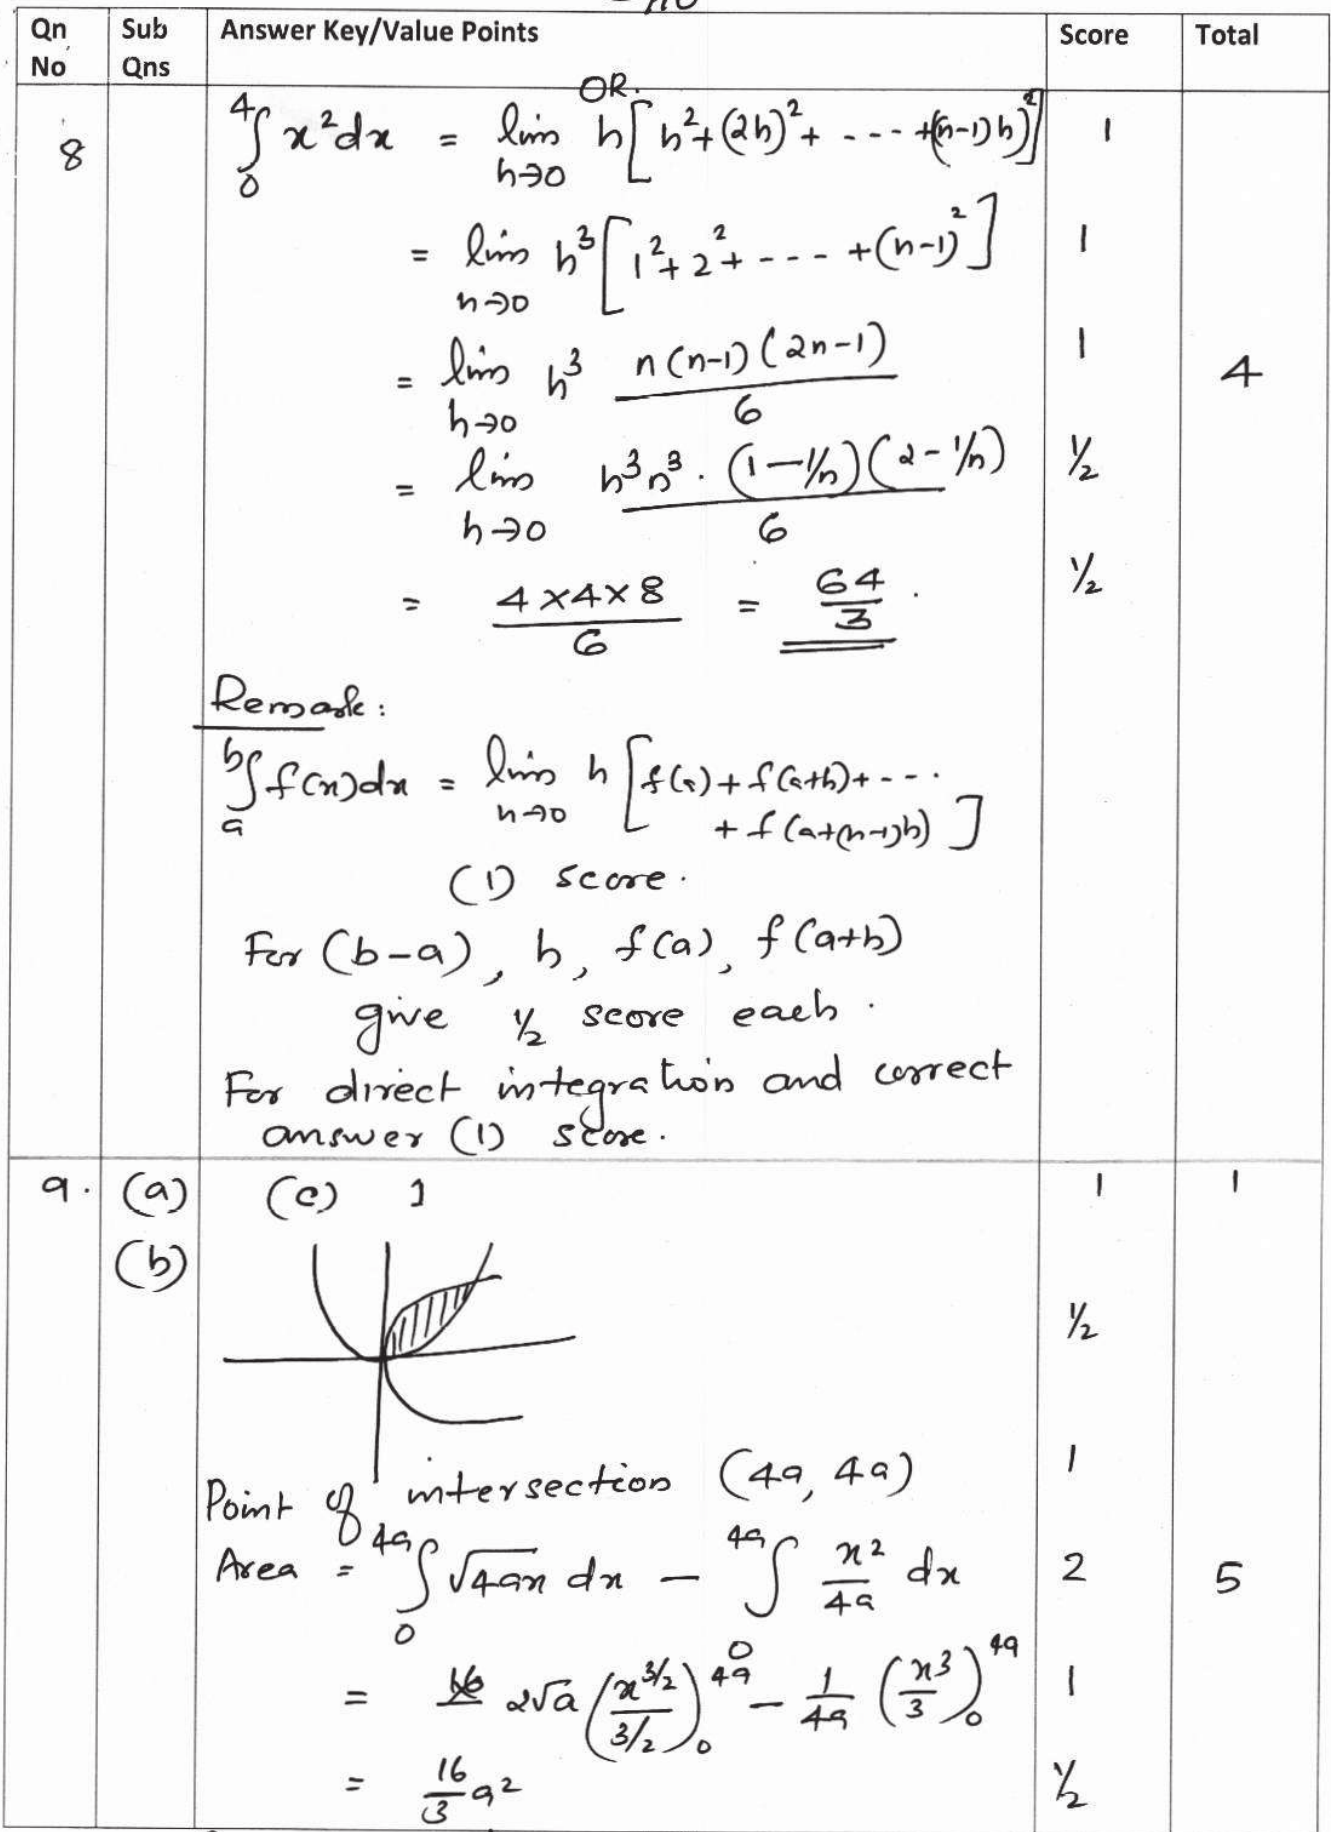 Qn No Sub Qns Answer Key/Value Points Score Total
OR.
8 4∫0 x²dx = lim h→0 h[h²+(2h)²+ ---- +((n-1)h)²] 1
= lim h→0 h³[1²+2²+---- +(n-1)²] 1
= lim h→0 h³ n(n-1)(2n-1)/6 1 4
= lim h→0 h³n³.(1-1/n)(2-1/n)/6 ½
= 4×4×8/6 = 64/3. ½
Remark:
b∫a f(x)dx = lim h→0 h[f(a)+f(a+h)+---.
+f(a+(n-1)h)]
(1) score.
For (b-a), h, f(a), f(a+h)
give ½ score each.
For direct integration and correct
answer (1) score.
9. (a) (c) 1 1 1
(b) ½
Point of intersection (4a, 4a) 1
Area = 4a∫0 √4ax dx - 4a∫0 x²/4a dx 2 5
= 2√a (x^3/2 / 3/2)0^4a - 1/4a (x³/3)0^4a 1
= 16/3 a² ½